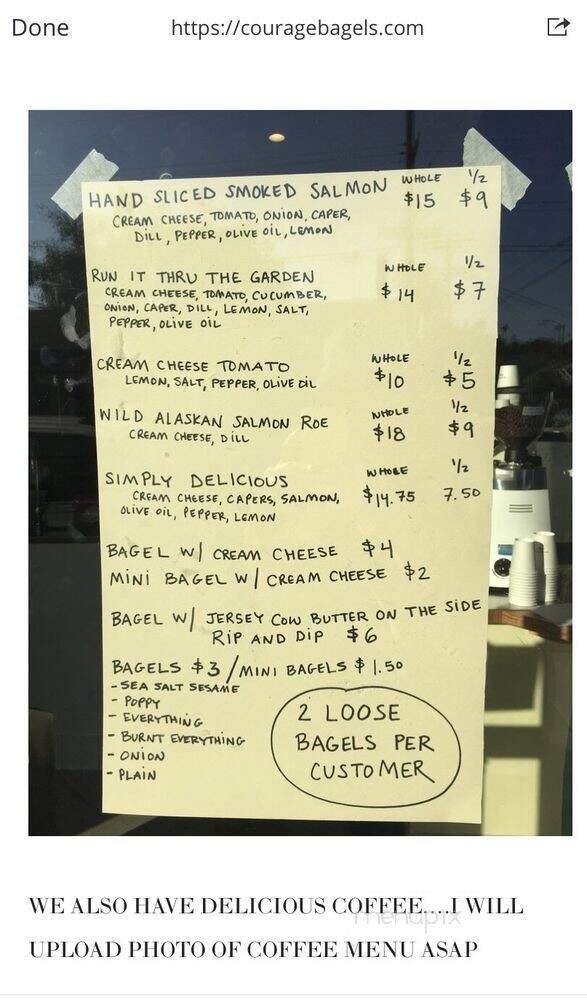 Done https://couragebagels.com
WHOLE 1/2
HAND SLICED SMOKED SALMON $15 $9
CREAM CHEESE, TOMATO, ONION, CAPER,
DILL, PEPPER, OLIVE OIL, LEMON
WHOLE 1/2
RUN IT THRU THE GARDEN $14 $7
CREAM CHEESE, TOMATO, CUCUMBER,
ONION, CAPER, DILL, LEMON, SALT,
PEPPER, OLIVE OIL
WHOLE 1/2
CREAM CHEESE TOMATO $10 $5
LEMON, SALT, PEPPER, OLIVE OIL
WHOLE 1/2
WILD ALASKAN SALMON ROE $18 $9
CREAM CHEESE, DILL
WHOLE 1/2
SIMPLY DELICIOUS $14.75 7.50
CREAM CHEESE, CAPERS, SALMON,
OLIVE OIL, PEPPER, LEMON
BAGEL W/ CREAM CHEESE $4
MINI BAGEL W/ CREAM CHEESE $2
BAGEL W/ JERSEY COW BUTTER ON THE SIDE
RIP AND DIP $6
BAGELS $3/MINI BAGELS $1.50
- SEA SALT SESAME
- POPPY
- EVERYTHING
- BURNT EVERYTHING
- ONION
- PLAIN
2 LOOSE
BAGELS PER
CUSTOMER
WE ALSO HAVE DELICIOUS COFFEE....I WILL
menupix
UPLOAD PHOTO OF COFFEE MENU ASAP